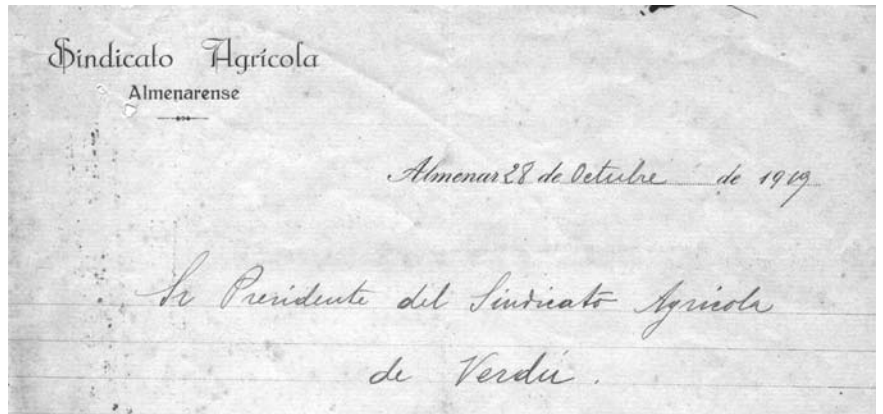 Sindicato Agrícola
Almenarense
Almenar 28 de Octubre de 1919
Sr Presidente del Sindicato Agricola
de Verdú.